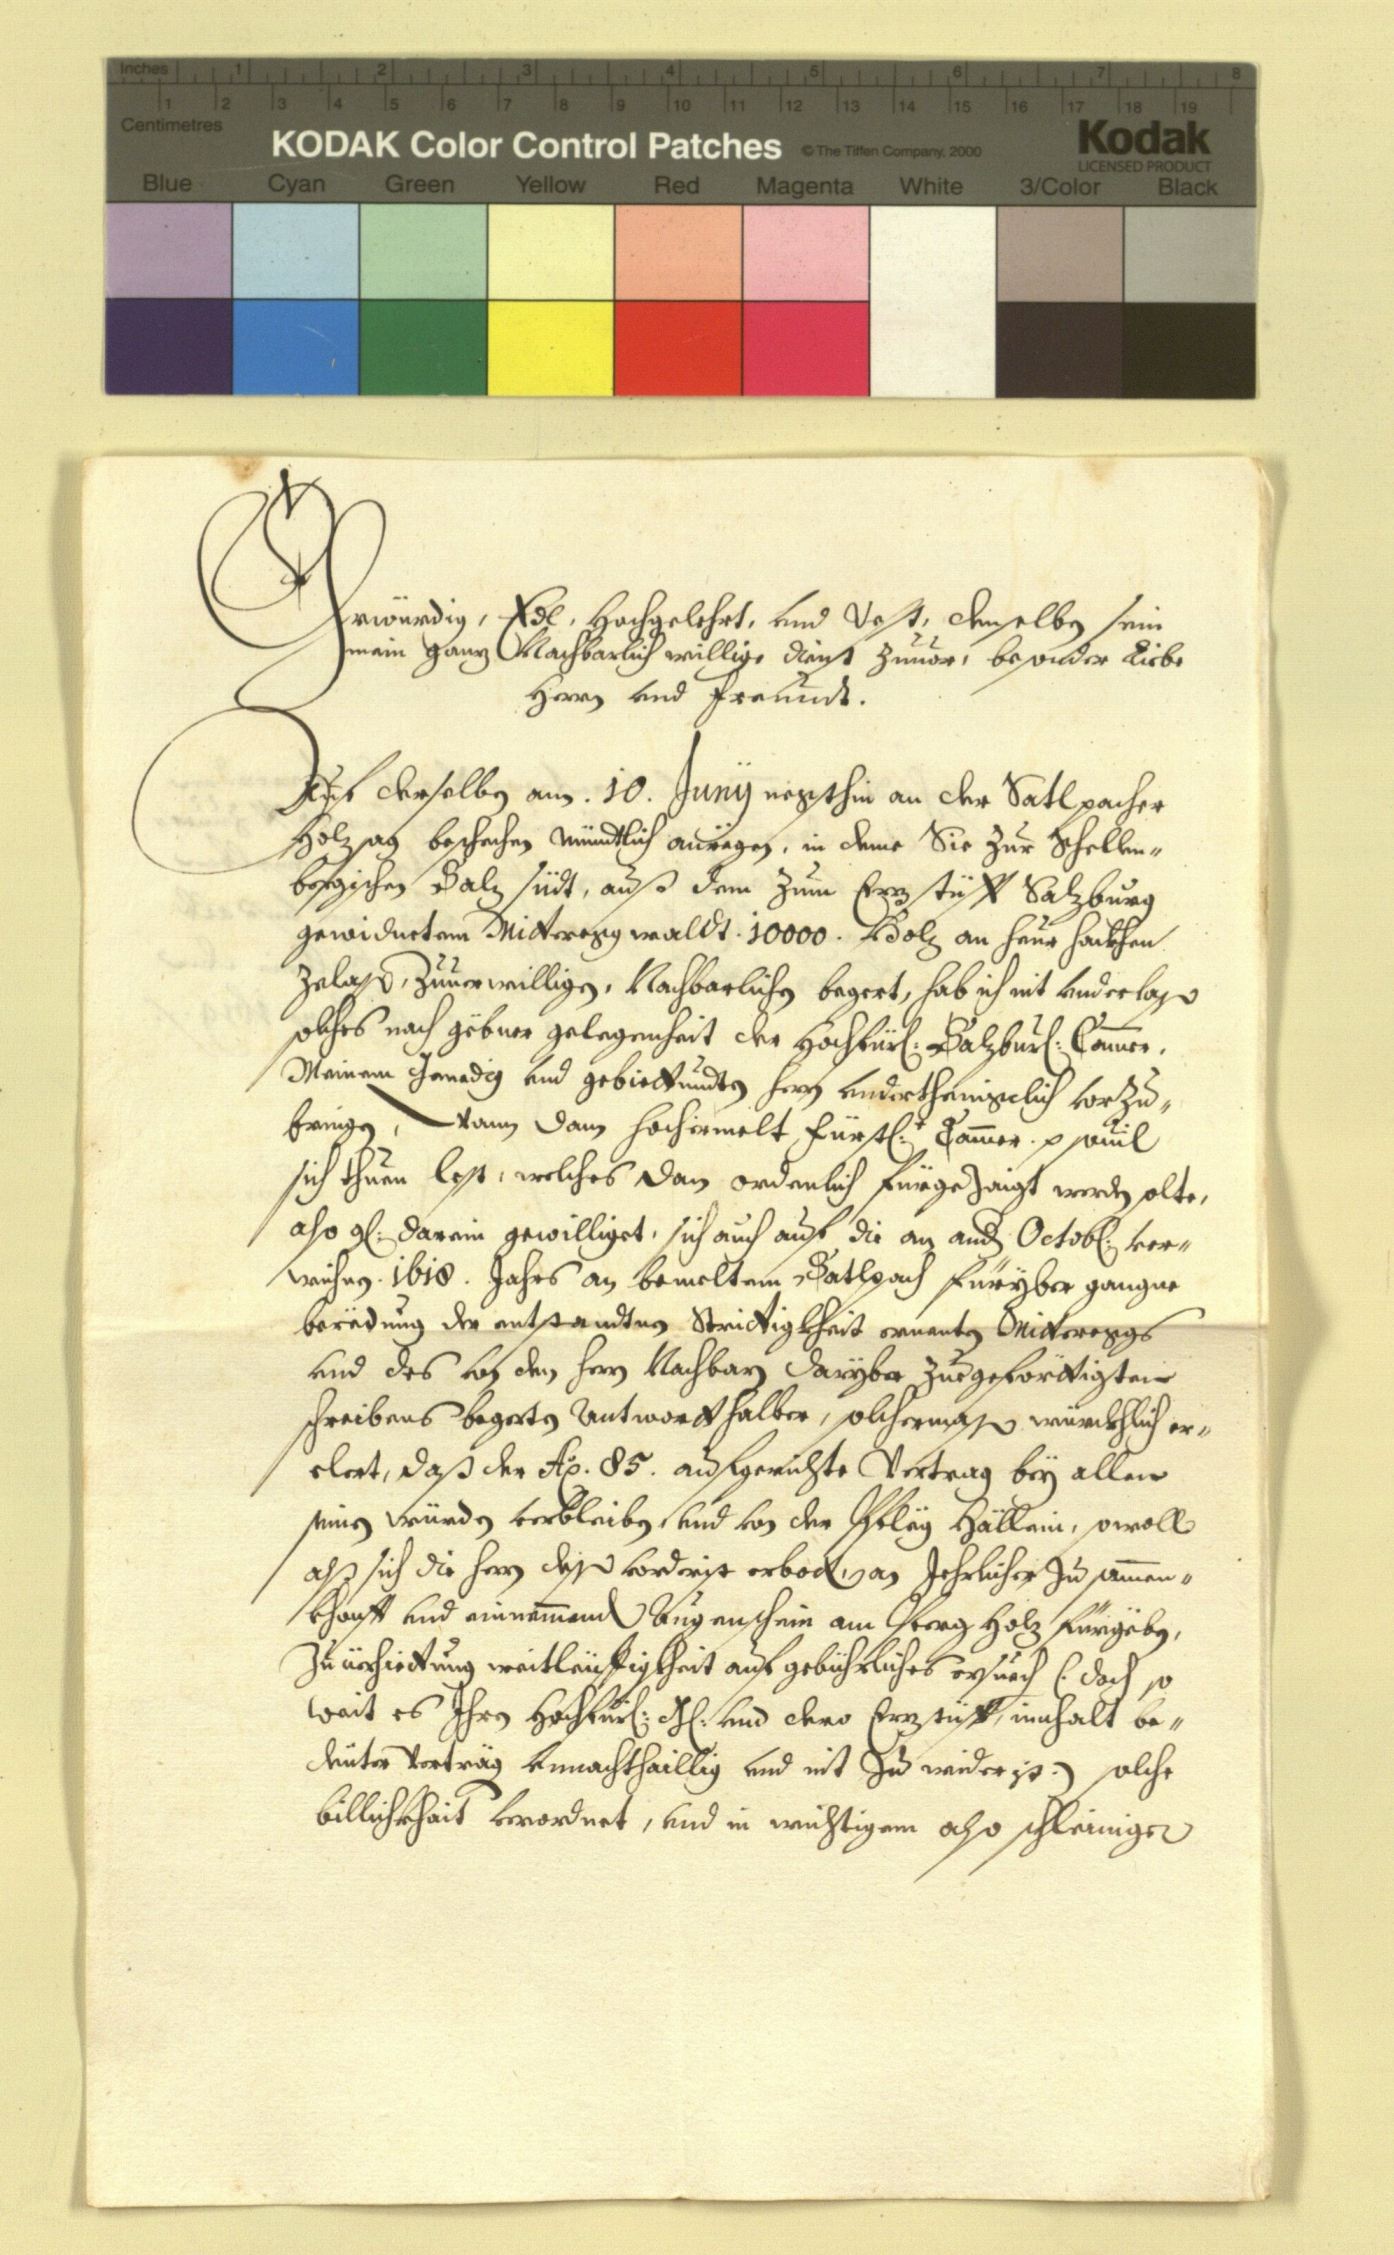 Inches 1 2 3 4 5 6 7 8
Centimetres 1 2 3 4 5 6 7 8 9 10 11 12 13 14 15 16 17 18 19
KODAK Color Control Patches © The Tiffen Company, 2000 Kodak
LICENSED PRODUCT
Blue Cyan Green Yellow Red Magenta White 3/Color Black
Erwürdig, Edl, Hochgelehrt, und Vest, denselben sein
mein ganz Nachbarlich willige dienst zuuor, besonder Liebe
Herrn und Freundt.
Auf derselben am. 10. Junÿ negsthin an der Satlpacher
Holzsag beschechen mündtlich anregen, in deme Sie zur Schellen-
bergischen Salz südt, auß dem zum Erzstüfft Salzburg
gewidnetem Mitteregg waldt. 10000. Holz an heur hackhen
zelassen, zuuerwilligen, Nachbarlichen begert, hab ich nit underlassen
solches nach gebner gelegenheit der Hochfürl: Salzburl: Cammer,
Meinem Genedig und gebiettundten herrn underthenigclich vorzu-
bringen, Wann dann hochermelt Fürstl: Cammer souil
sich thuen lest, welches dan ordenlich fürgezaigt werden solte,
also gl: darein gewilliget, sich auch auf die an and Octobl: ver-
wichnen. 1618. Jahrs an bemeltem Satlpach fürÿber gangne
beredung der entstandtnen Strittigkheit ernenten Mittereggs
und des von den herrn Nachbarn darÿber zuegeförttigten
schreibens begerten Antwortt halber, solchermassen würckhlich er-
clert, daß der Ao. 85. aufgerichte Vertrag beÿ allen
seinen würden verbleiben, und von der Pfleg Hällein, sowoll
alß sich die herrn dessen vorderist erbotten, an Jehrlicher Zusamen-
khonfft und einnemend Augenschein am Perg Holz fürgeben,
Zu weitleüffigkheit auf gebührliches ersuech (: doch so
weit es Ihren Hochfürl: Gl: und dero Erzstüfft, innhalt be-
deuter Verträg unnachthaillig und nit zu wider ist:) solche
billichkhait verordnet, und in wichtigem also schleiniger